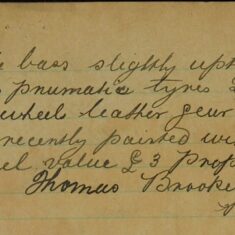 bars slightly upt
pnumatic tyres
wheels leather gear
recently painted wi
el value £3 Prop
Thomas Brooke